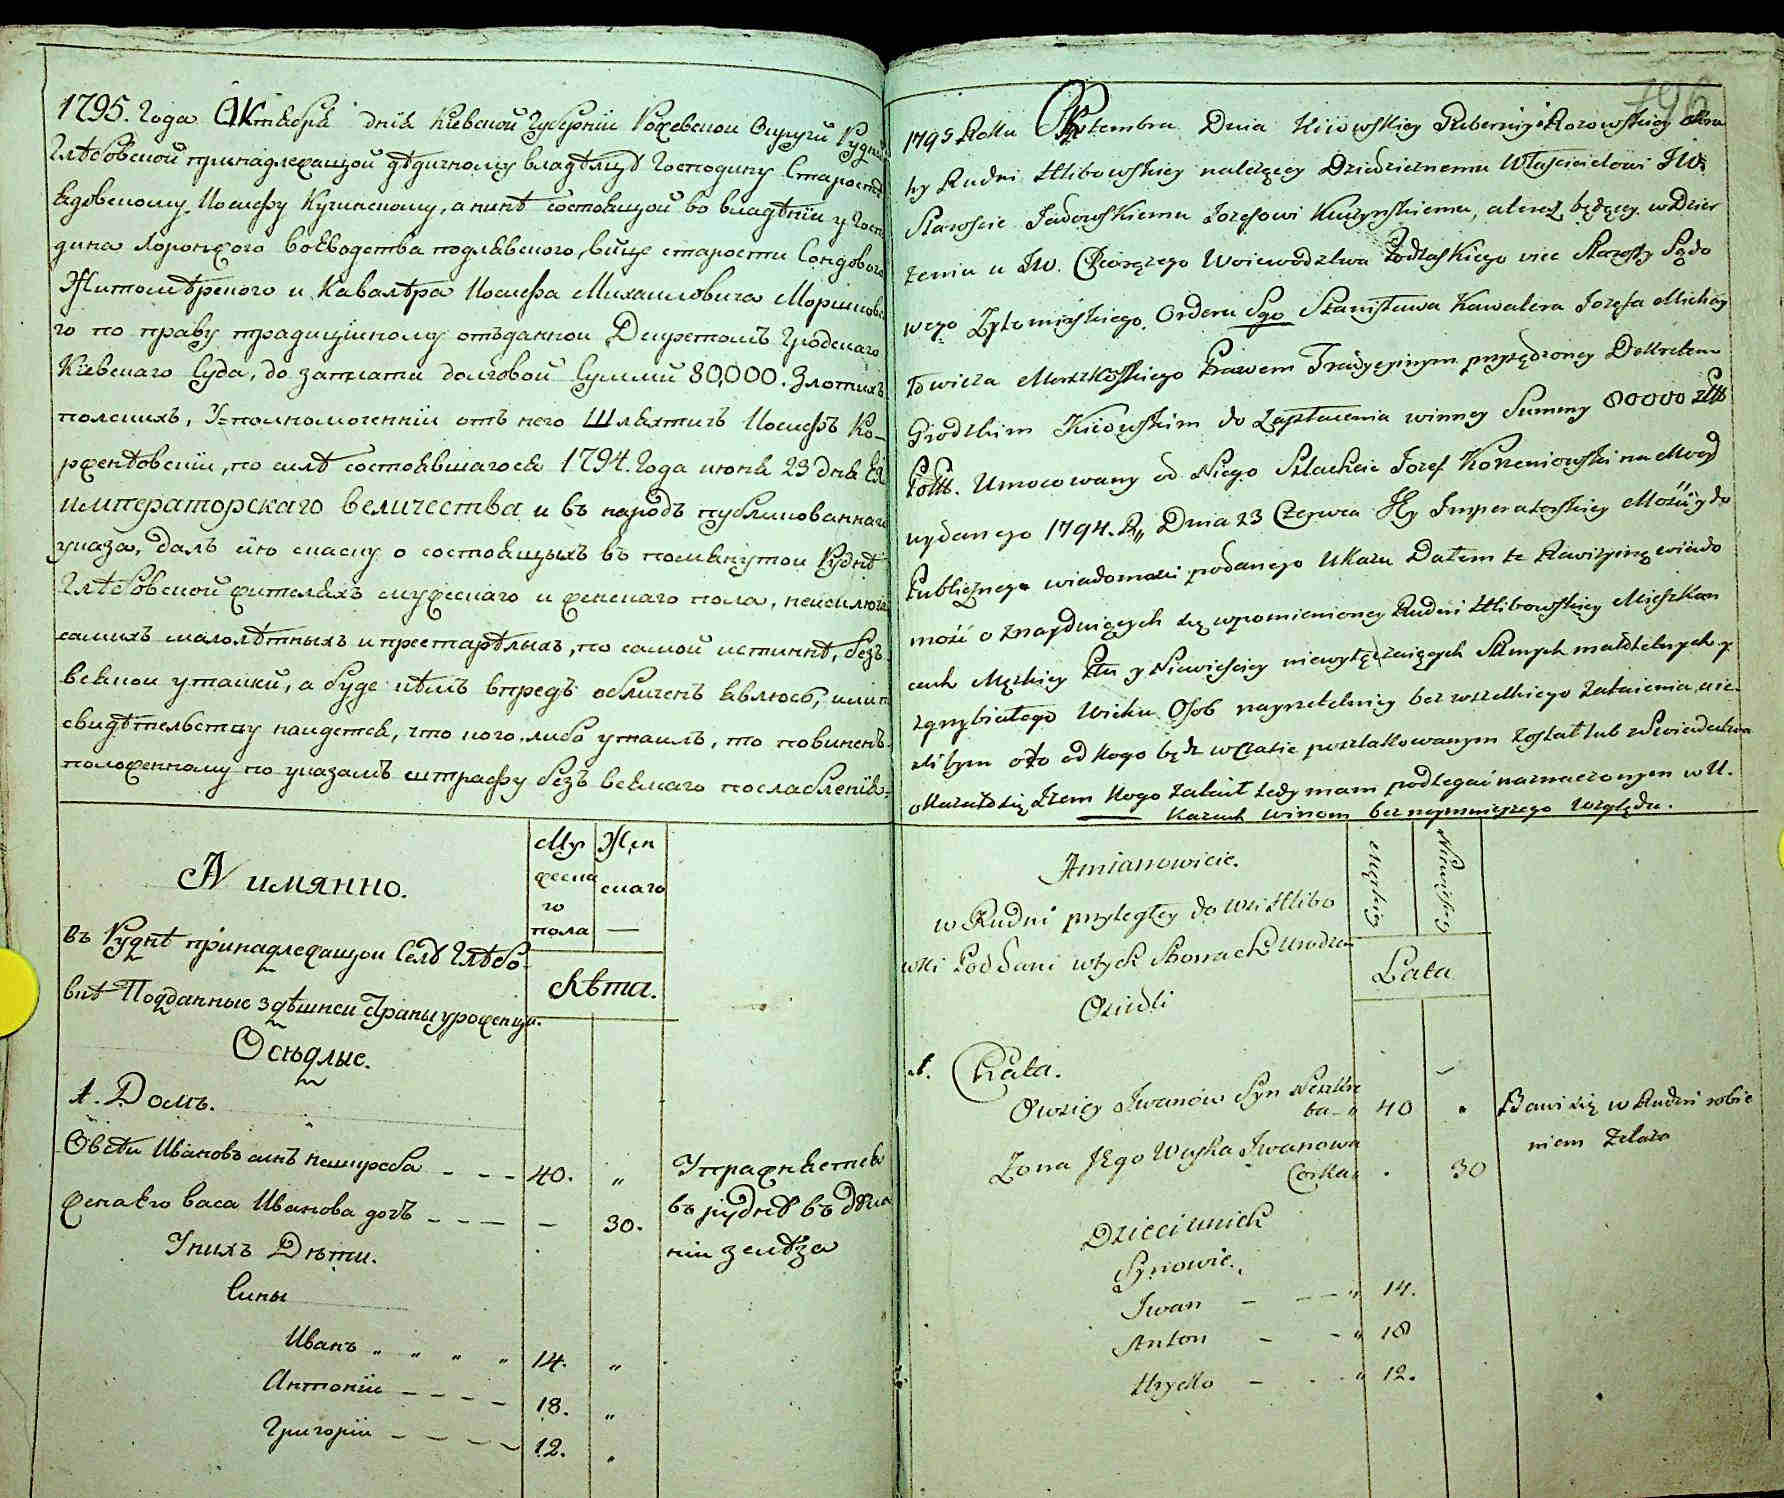 1795. Года Октября дня Киевской Губернии Рожевской Округи Рудни
Глѣбовской принадлежащой дѣдичному владѣлцѣ Господину Старостѣ
Ядовскому Иосифу Кучинскому, а нинѣ состоящой во владѣнiи у Госпо
дина Хоронжого воеводства подляского, вице старости Сондового
Житомѣрского и Кавалѣра Иосифа Михаиловича
го по праву традицийному отъданной Декретомъ Гродскаго
Киевскаго Суда, до заплати долговой Суммы 80,000. Злотихъ
полскихъ, Уполномоченнiй отъ него Шляхтичъ Иосифъ Ко-
рженѣовскiй, по силѣ состоявшагося 1794. Года июня 23 дня Ея
императорскаго величества и въ народъ публикованнаго
указа, далъ сию сказку о состоящыхъ въ помянутой Руднѣ
Глѣбовской жителяхъ мужескаго и женскаго пола, неисключая
самихъ малолѣтныхъ и престарѣлыхъ, по самой истиннѣ, безъ
всякой утайки, а буде кѣмъ впредъ обличенъ явлюсь, или по
свидѣтельству найдется, что кого либо утаилъ, то повиненъ
положенному по указамъ штрафу безъ всякаго послабленiя.
А имянно.
Му
жеска
го
пола
Жен
скаго
въ Руднѣ принадлежащой Селѣ Глѣбо-
вкѣ Подданные здѣшней Краны уроженцы.
Лѣта.
Осѣдлые.
1. Домъ.
Овсѣй Ивановъ синъ - - - 40. "
жена Его Васа Иванова дочъ - - - — 30.
Упражняется
въ руднѣ въ дѣла
нiи зелѣза
У нихъ Дѣти.
Сины
Иванъ " " " " 14. "
Антонiй - - - - 18. "
Григорiй - - - - 12. "
196
1795 Roku Oktembra Dnia Kiiowskiey Guberniy Rozowskiey Okru
hy Rudni Hlibowskiey należącey Dziedzicznemu Właścicielowi JW.
Staroście Jadowskiemu Jozefowi Kuczynskiemu, a teraz będącey w Dzier
żeniu u JW. Chorążego Woiewodztwa Podlaskiego vice Starosty Sądo
wego Żytomirskiego Orderu Sgo Stanisława Kawalera Jozefa Michay
łowicza Prawem Tradycyinym przysądzoney Dekretem
Grodzkim Kiiowskim do Zapłacenia winney Summy 80000 złł
Poll. Umocowany od Niego Szlachcic Jozef Korzeniowski na Mocy
wydanego 1794. R. Dnia 23 Czerwca Jey Imperatorskiey Mości y do
Publiczney wiadomości podanego Ukazu Dałem te Rewizyiną wiado
mość o Znayduiących się wpomienioney Rudni Hlibowskiey Mieszkan
cach Męskiey Płci y Niewieściey niewyłączaiących Samych małoletnych y
zgrzybiałego Wieku Osob nayrzetelniey bez wszelkiego Zataienia, ie
zli bym oto od kogo będz wczasie poszlakowanym został lub z Swiadectwa
okazało się żem kogo zataił tedy mam podlegać naznaczonym w U.
kazach winom bez naymnieyszego względu.
Amianowicie.
Męskiey
Niewieściey
w Rudni przyległey do wsi Hlibo
wki Poddani wtych Stronach Urodzeni
Lata
Osiedli
1. Chata.
Owsiey Iwanow Syn
40 "
Bawi się w Rudni robie
niem Żelaza
Zona Jego Waska Iwanowa
Corka . 30
Dzieci unich
Synowie.
Iwan - - - " 14.
Anton - - " 18
Hrycko - - " 12.